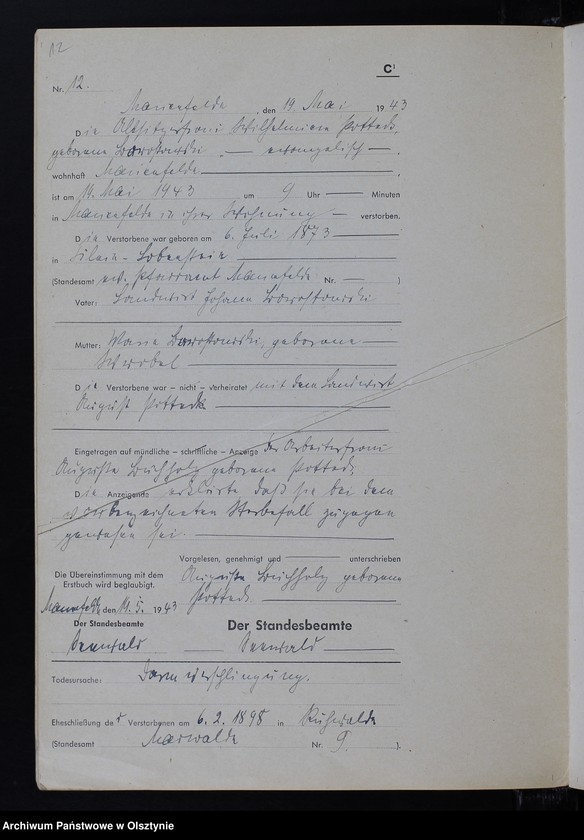 12
C¹
Nr. 12.
Marienfelde, den 19. Mai 1943
Die Altsitzerfrau Wilhelmine Pottek,
geborene — evangelisch —,
wohnhaft Marienfelde
ist am 14. Mai 1943 um 9 Uhr — Minuten
in Marienfelde in ihrer Wohnung — verstorben.
Die Verstorbene war geboren am 6. Juli 1873
in
(Standesamt ev. Pfarramt Marienfelde Nr. — )
Vater: Landwirt Johann
Mutter: geborene
Wrobel
Die Verstorbene war – nicht – verheiratet mit dem Landwirt
August Pottek
Eingetragen auf mündliche – schriftliche – Anzeige der Arbeiterfrau
Auguste Buchholz geborene Pottek.
Die Anzeigende erklärte, daß sie bei dem
vorbezeichneten Sterbefall zugegen
gewesen sei.
Vorgelesen, genehmigt und — unterschrieben
Auguste Buchholz geborene
Pottek
Die Übereinstimmung mit dem
Erstbuch wird beglaubigt.
Marienfelde, den 19. 5. 1943
Der Standesbeamte
Der Standesbeamte
Todesursache: Darmverschlingung.
Eheschließung der Verstorbenen am 6. 2. 1898 in Ruhwalde
(Standesamt Marwalde Nr. 9. ).
Archiwum Państwowe w Olsztynie